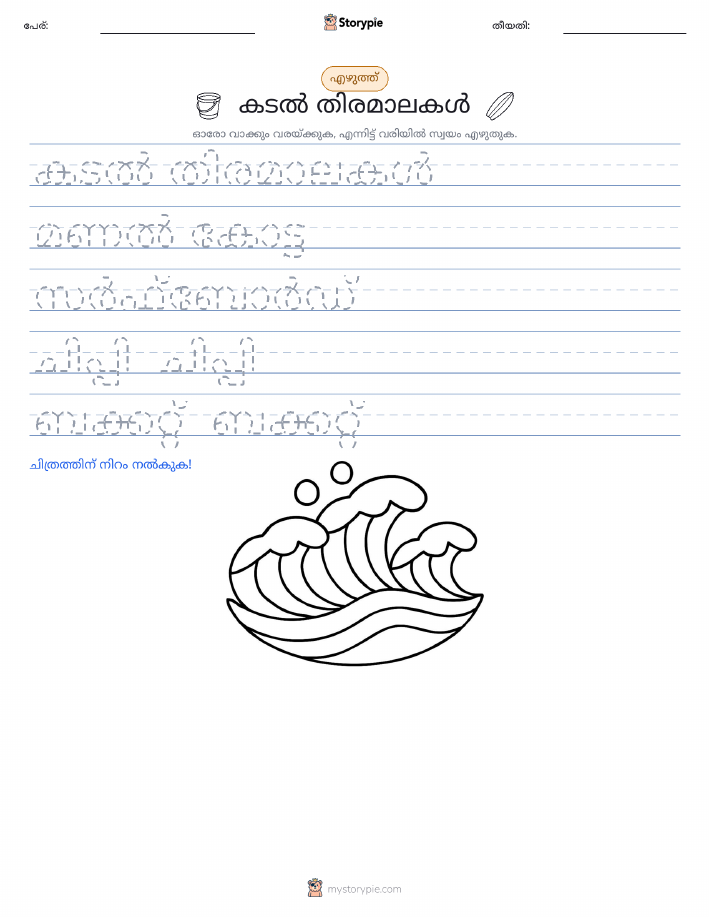 പേര്:
Storypie
തീയതി:
എഴുത്ത്
കടൽ തിരമാലകൾ
ഓരോ വാക്കും വരയ്ക്കുക, എന്നിട്ട് വരിയിൽ സ്വയം എഴുതുക.
കടൽ തിരമാലകൾ
മണൽ കോട്ട
സർഫ്ബോർഡ്
ചിപ്പി ചിപ്പി
ബക്കറ്റ് ബക്കറ്റ്
ചിത്രത്തിന് നിറം നൽകുക!
mystorypie.com